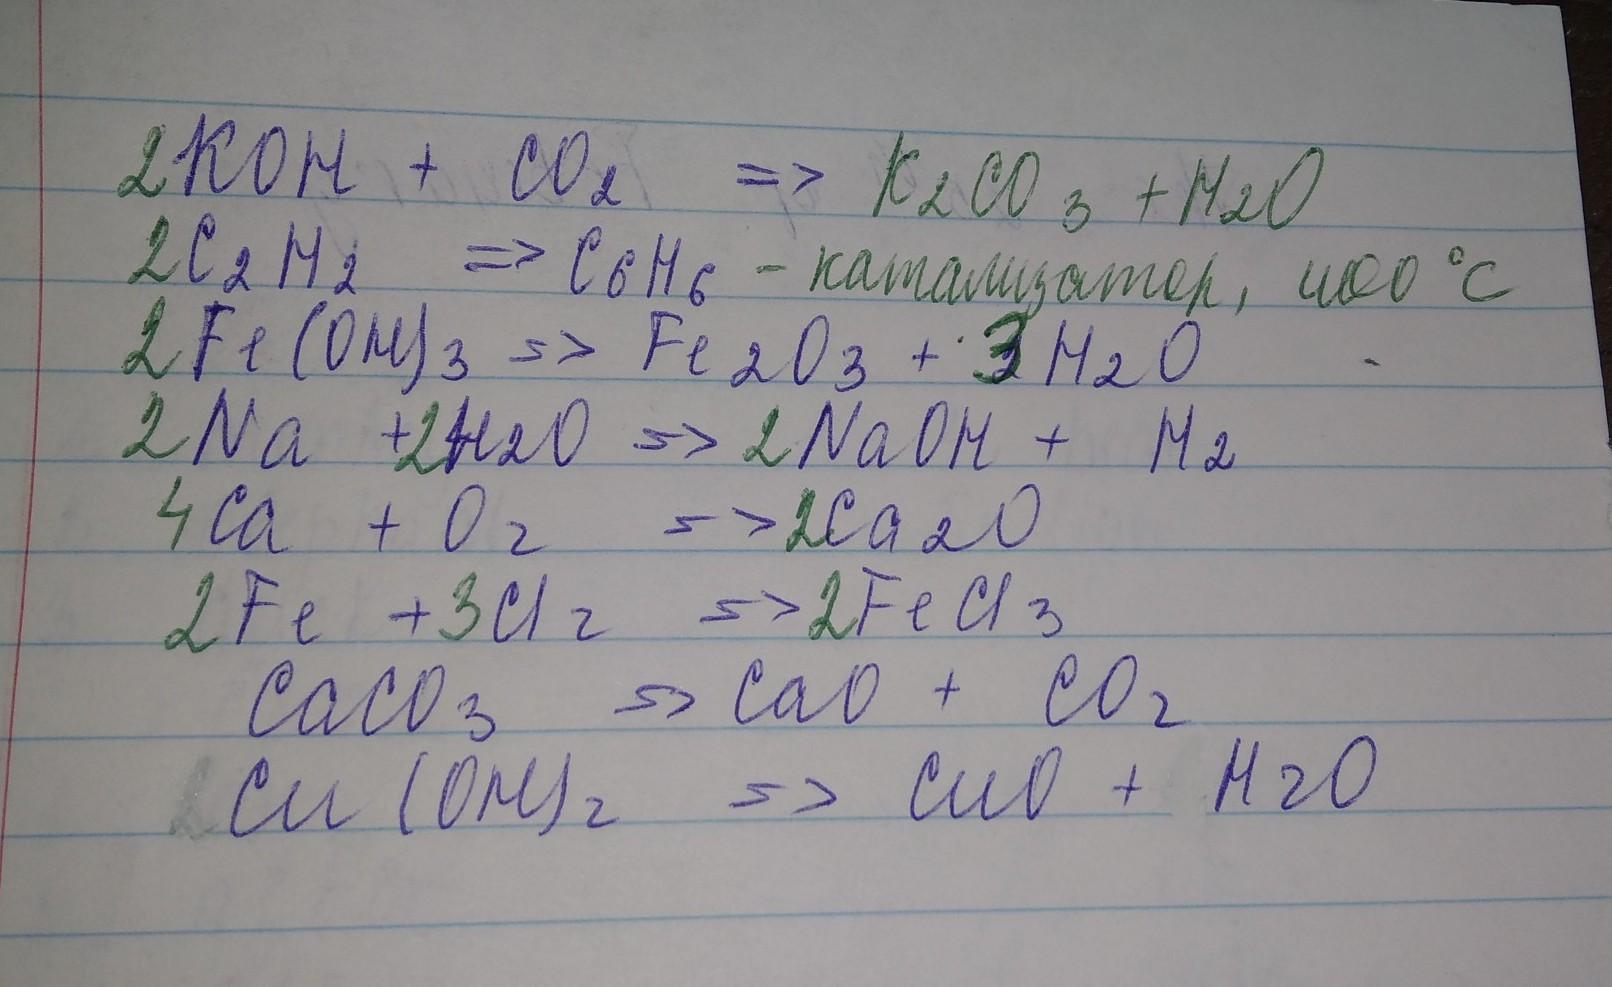 2KOH + CO2 => K2CO3 + H2O
2C2H2 => C6H6 - катализатор, 400 °C
2Fe(OH)3 => Fe2O3 + 3H2O
2Na + 2H2O => 2NaOH + H2
4Ca + O2 => 2Ca2O
2Fe + 3Cl2 => 2FeCl3
CaCO3 => CaO + CO2
Cu(OH)2 => CuO + H2O